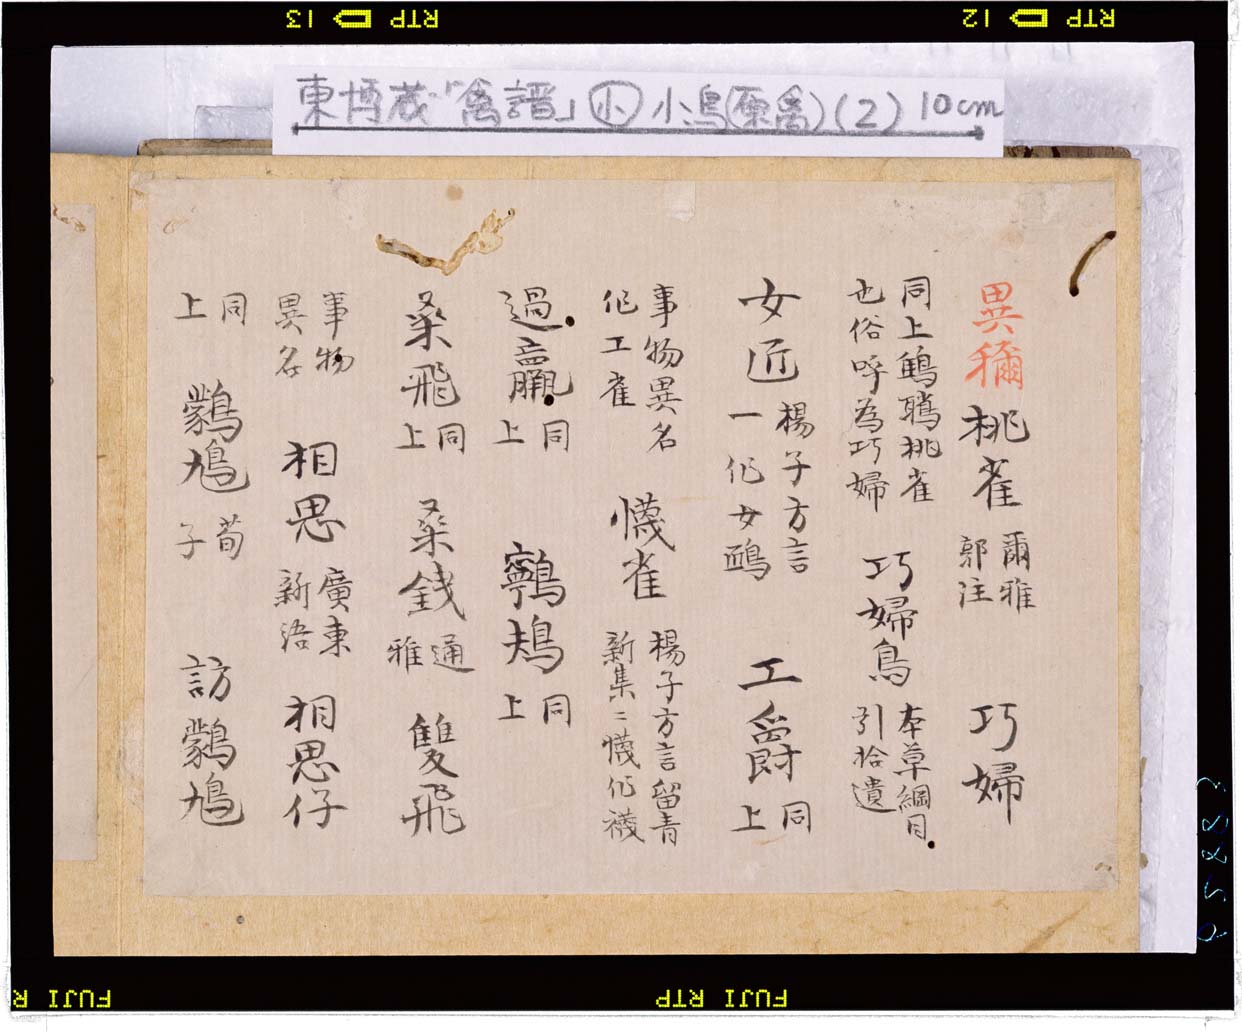 RTP 13
RTP 12
東博蔵「禽譜」㊥小鳥(原禽)(2) 10cm
異稱 桃雀 爾雅郭注 巧婦
同上鷦鷯桃雀也俗呼為巧婦 巧婦鳥 本草綱目引拾遺
女匠 楊子方言一作女鴎 工爵 同上
事物異名作工雀 懱雀 楊子方言留青新集ニ懱作襪
過鸁 同上 鸋鴂 同上
桑飛 同上 桑錢 通雅 雙飛
事物異名 相思 廣東新語 相思仔
同上 鸏鳩 荀子 訪鸏鳩
FUJI R
FUJI RTP